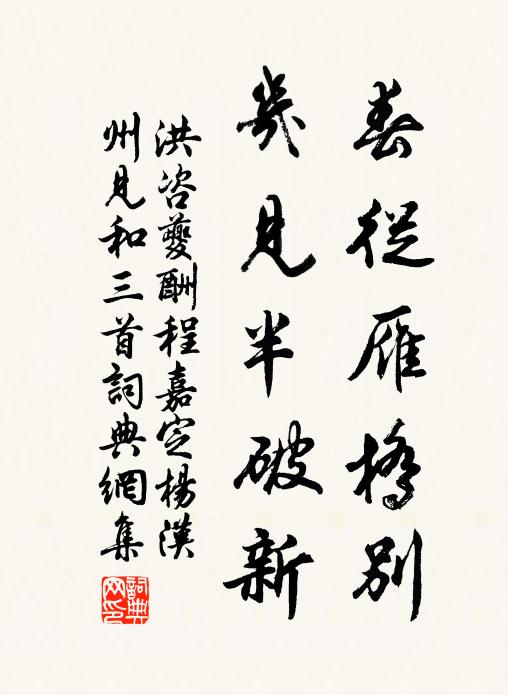 春從雁橋別
幾見半破新
洪咨夔酬程嘉定楊漢
州見和三首詞典網集
詞典網印